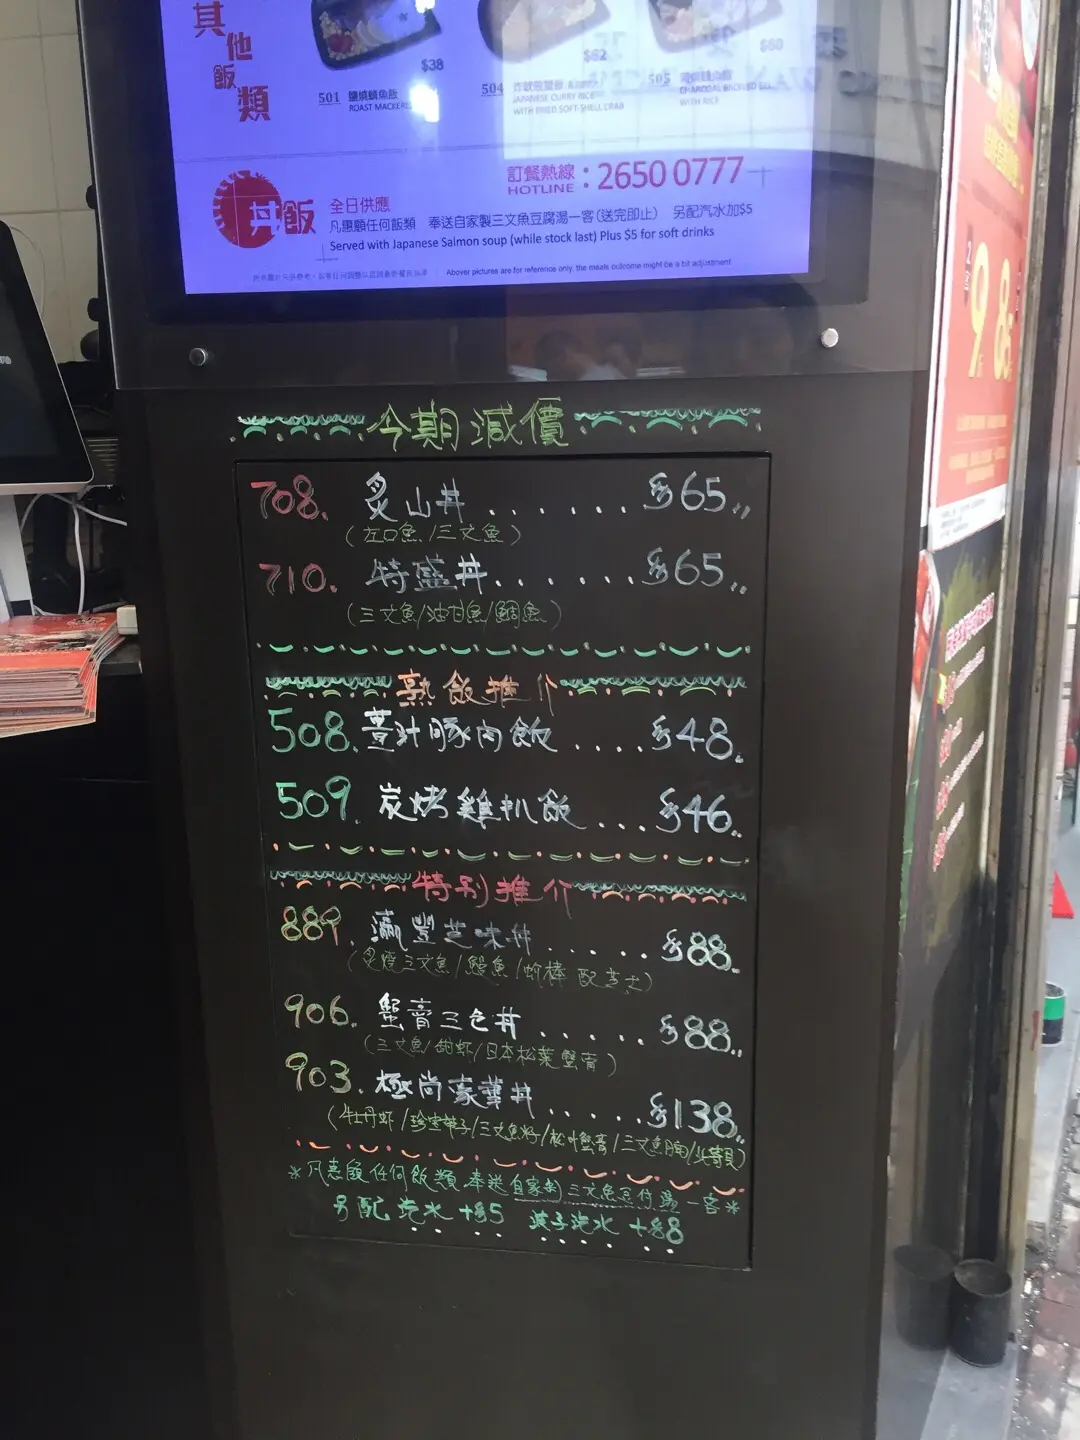 其他飯類
$38
$62
$68
501 鹽燒鯖魚飯
ROAST MACKEREL
504
JAPANESE CURRY RICE
WITH FRIED SOFT-SHELL CRAB
505
WITH RICE
訂餐熱線
HOTLINE
: 2650 0777
丼飯
全日供應
凡惠顧任何飯類 奉送自家製三文魚豆腐湯一客(送完即止) 另配汽水加$5
Served with Japanese Salmon soup (while stock last) Plus $5 for soft drinks
Above pictures are for reference only, the meals outcome might be a bit adjustment
今期減價
708. 炙山丼 ....... $65
(左口魚/三文魚)
710. 特盛丼 ....... $65
(三文魚/油甘魚/鯛魚)
熟飯推介
508. 薑汁豚肉飯 .... $48
509. 炭烤雞扒飯 ... $46
特別推介
889. 瀛豐芝味丼 ..... $88
(炙燒三文魚/鰻魚/蚧棒 配芝士)
906. 蟹膏三色丼 ..... $88
(三文魚/甜虾/日本松葉蟹膏)
903. 極尚豪華丼 ..... $138
(牡丹虾/珍宝帶子/三文魚籽/松叶蟹膏/三文魚腩/北寄貝)
*凡惠顧任何飯類 奉送自家制三文魚豆付湯一客*
另配汽水+$5 波子汽水+$8
9
8